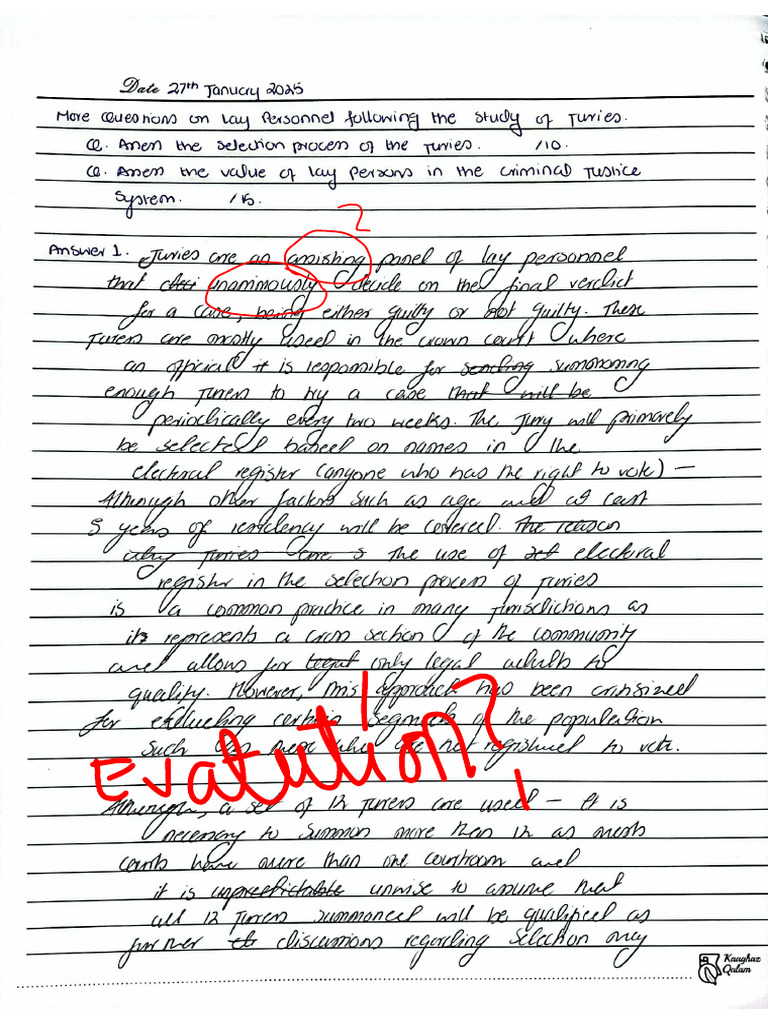 Date 27th January 2025
More Questions on Lay Personnel following the study of Juries.
Q. Assess the selection process of the Juries. /10.
Q. Assess the value of lay persons in the Criminal Justice
System. /15.
?
Answer 1. Juries are an assisting panel of lay personnel
that unanimously decide on the final verdict
for a case, being either guilty or not guilty. These
Jurers are mostly used in the crown court where
an official it is responsible for sending summoning
enough Jurers to try a case that will be
periodically every two weeks. The Jury will primarly
be selected based on names in the
electoral register (anyone who has the right to vote) –
Although other factors such as age and at least
5 years of residency will be covered. The reason
why Juries are s the use of electoral
register in the selection process of Juries
is a common practice in many Jurisdictions as
it represents a cross section of the community
and allows for only legal adults to
quality. However, this approach has been critisized
for excluding certain segments of the population
such as those who are not registered to vote.
Evalution?
Although, a set of 12 Jurers are used – It is
necessary to summon more than 12 as most
courts have more than one courtroom and
it is unpredictable unwise to assume that
all 12 Jurers summoned will be qualified as
further discussions regarding selection may
Kaaghaz
Qalam